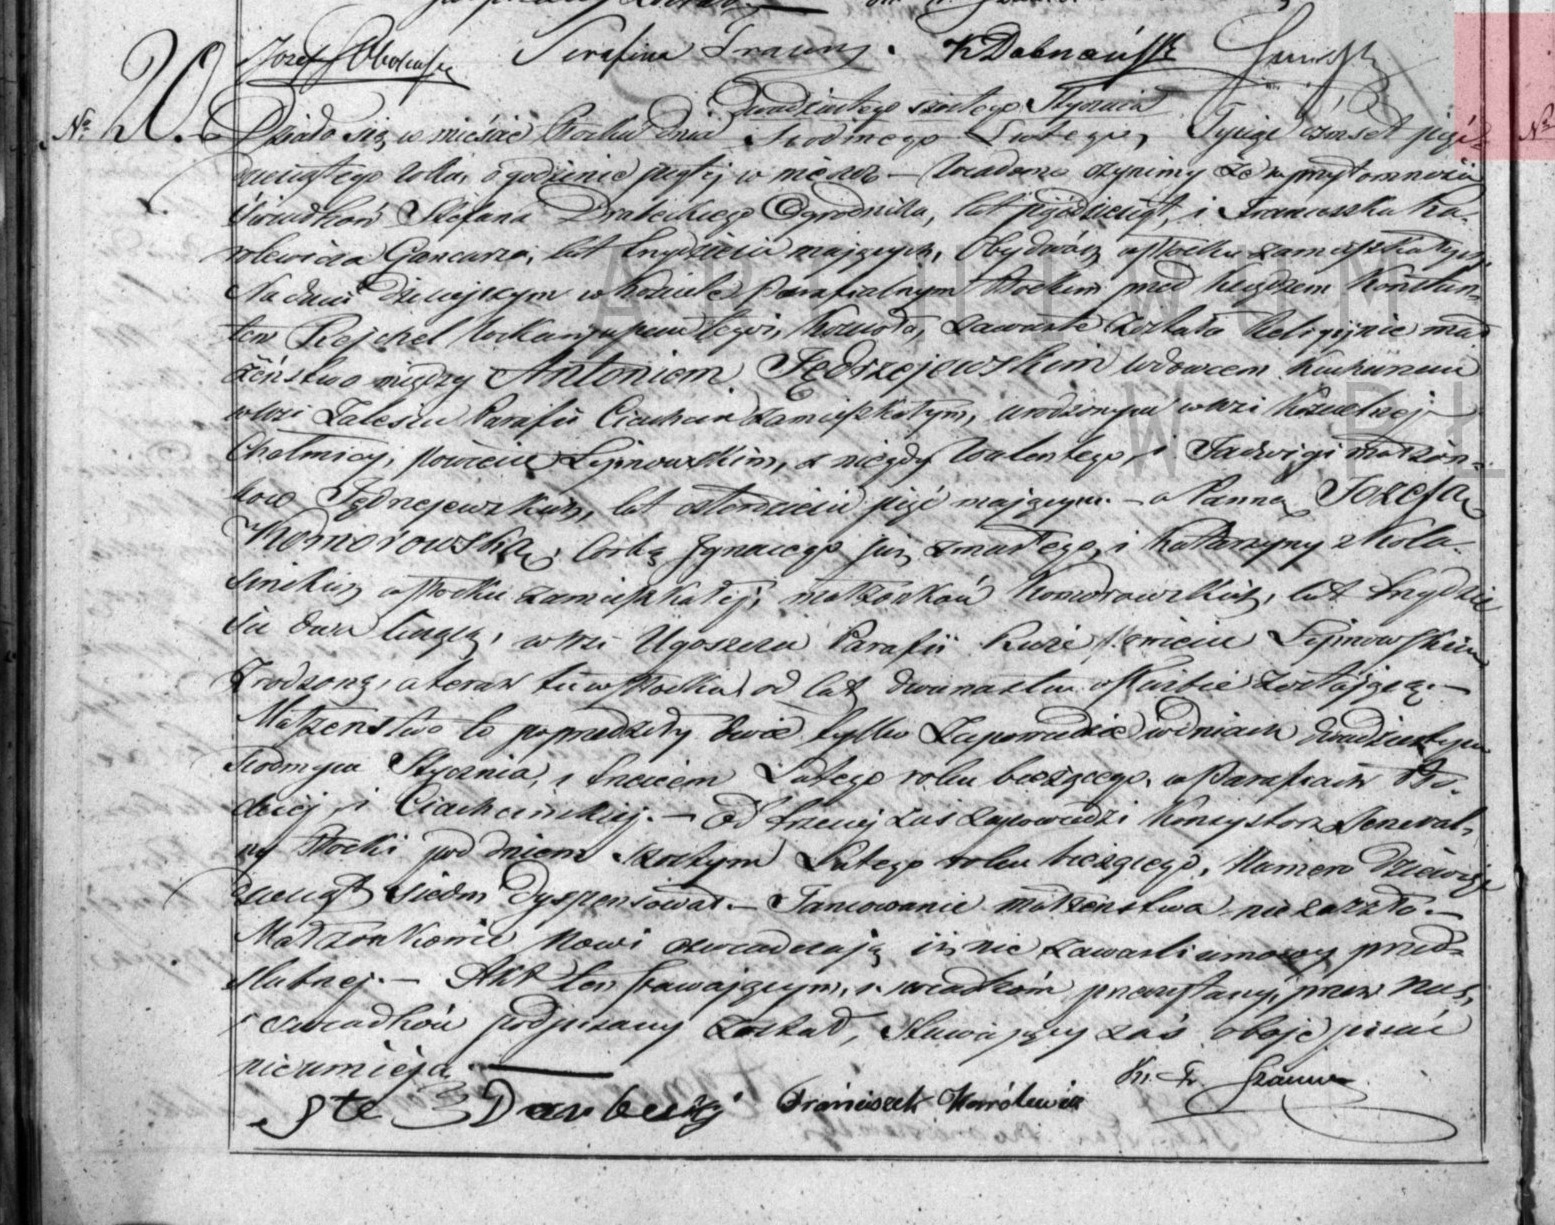 Serafina
Nr 20.
dwudziestego szóstego Stycznia
Działo się w mieście Płocku dnia siódmego Lutego, Tysiąc ośmset pięć-
dziesiątego roku, o godzinie piątej w wieczór — Wiadomo czynimy że w przytomności
świadków Stefana Ogrodnika, lat pięćdziesiąt, i Franciszka Ka-
rolewicza Garncarza, lat trzydzieści mających, Obydwóch w Płocku zamieszkałych,
Na dniu dzisiejszym w kościele Parafialnym Płockim przed Księdzem Konstan-
tem Rejchel Wikaryuszem tegoż Kościoła, zawarte zostało Religijnie mał-
żeństwo między Antoniem Jędrzejewskim wdowcem Kucharzem
w wsi Zalesiu Parafii Ciachcin zamieszkałym, urodzonym w wsi
Chalmicy, powiecie Lipnowskim, z niegdy Walentego, i Jadwigi małżon-
ków Jędrzejewskich, lat czterdzieści pięć mającym. — a Panną Józefą
Komorowską, córką Ignacego już zmarłego, i Katarzyny z Kola-
sińskich w Płocku zamieszkałej, małżonków Komorowskich, lat trzydzie-
ści dwa liczącą, w wsi Ugoszczu Parafii powiecie Lipnowskim
zrodzoną, a teraz tu w Płocku od lat dwunastu w służbie zostającą. —
Małżeństwo to poprzedziły dwie tylko Zapowiedzie w dniach dwudziestym
siódmym Stycznia, i trzecim Lutego roku bieżącego, w Parafiach Pło-
ckiej, i Ciachcińskiej. — Od trzeciej zaś zapowiedzi Konsystorz General-
ny Płocki pod dniem szóstym Lutego roku bieżącego, Numero dziewięć-
dziesiąt siedm dyspensował. — Tamowanie małżeństwa nie zaszło. —
Małżonkowie Nowi oświadczają iż nie zawarli umowy przed-
ślubnej. — Akt ten stawającym, i świadkom przeczytany, przez Nas,
i świadków podpisany został, Stawający zaś oboje pisać
nieumieją. —
Franciszek Karólewicz
ARCHIWUM
W PŁ